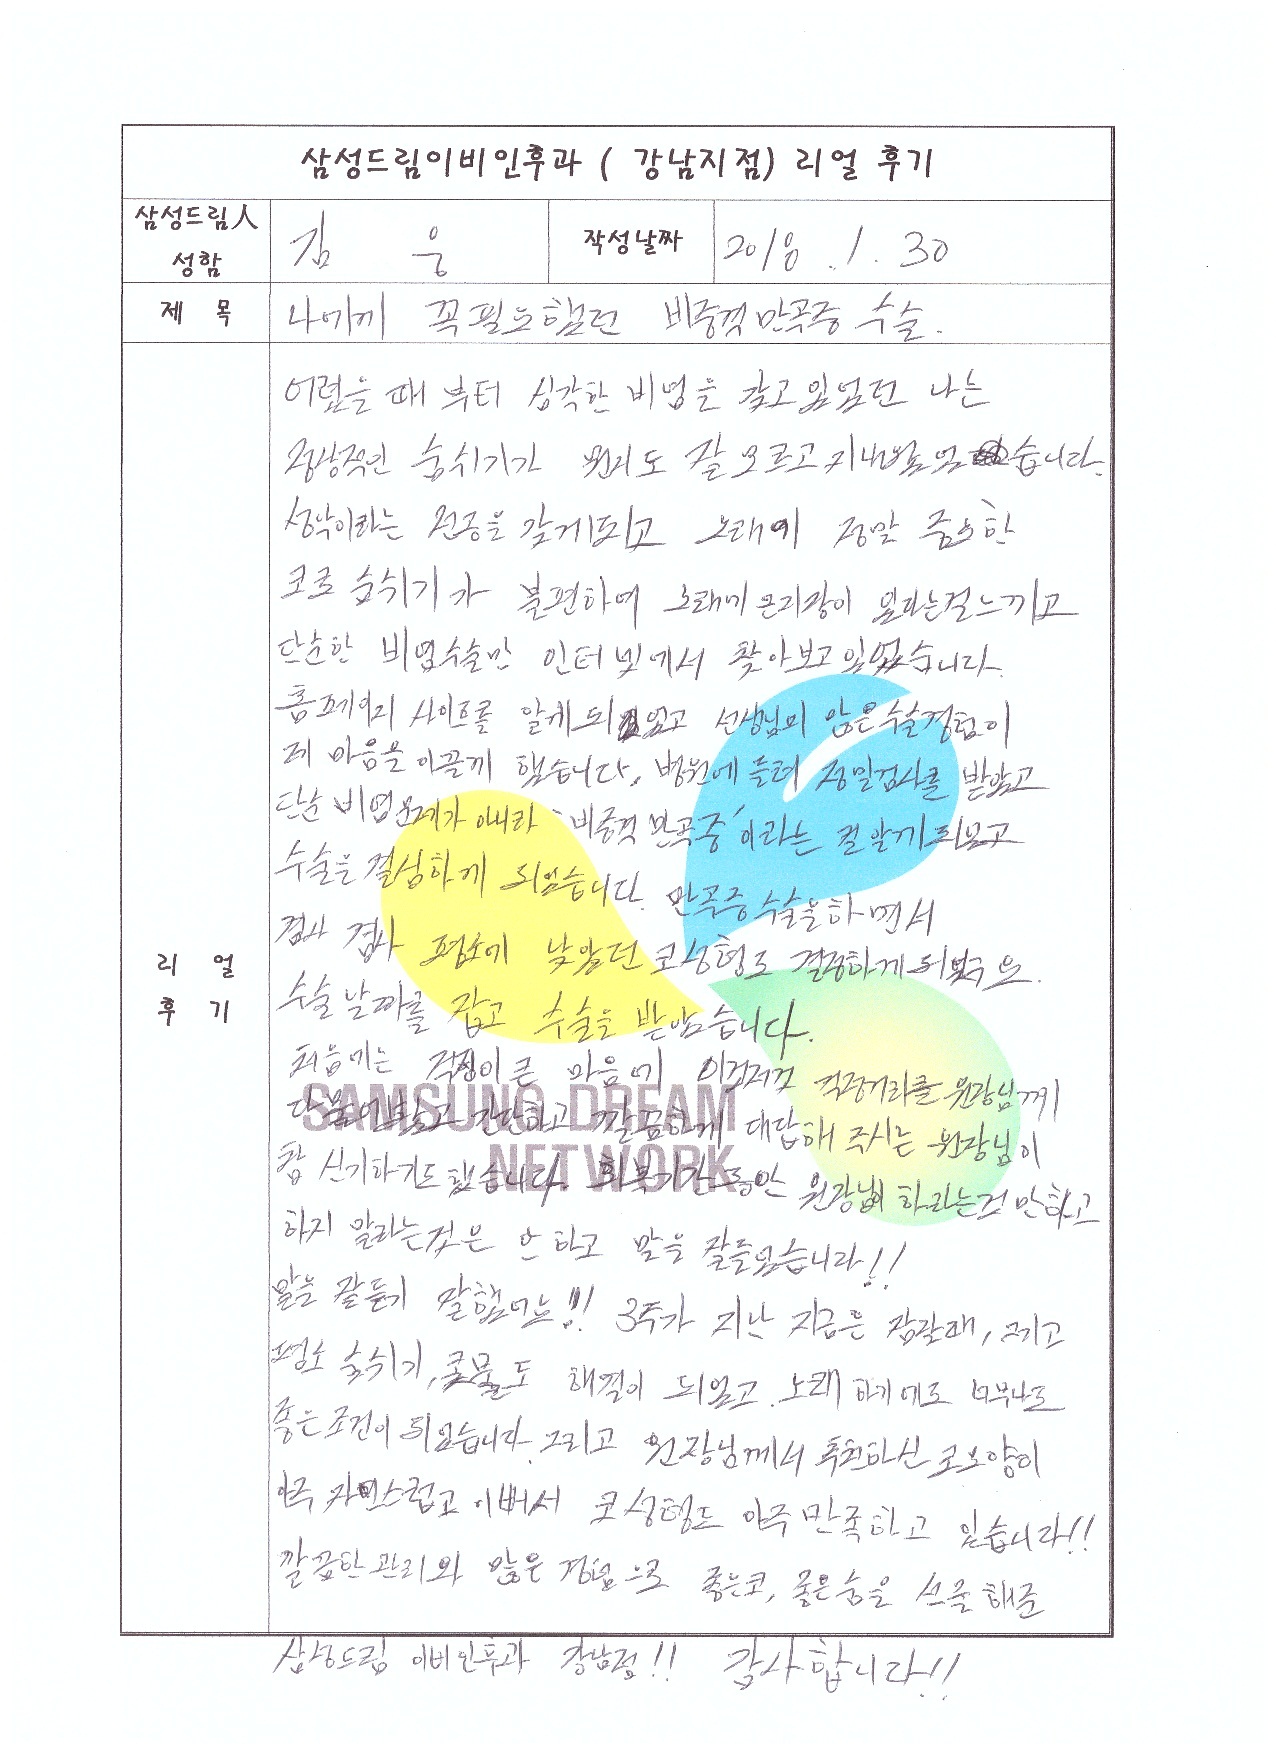 삼성드림이비인후과 ( 강남지점) 리얼 후기
삼성드림人 성함
김 웅
작성날짜
2018 . 1 . 30
제 목
나에게 꼭 필요했던 비중격 만곡증 수술.
리 얼 후 기
어렸을 때 부터 심각한 비염을 갖고 있었던 나는
정상적인 숨쉬기가 뭔지도 잘 모르고 지내었습니다.
성악이라는 전공을 갖게되고 노래에 정말 중요한
코로 숨쉬기가 불편하여 노래에 큰지장이 온다는걸 느끼고
단순한 비염수술만 인터넷에서 찾아보고 있었습니다.
홈페이지 사이트를 알게 되었고 선생님의 많은 수술경험이
제 마음을 이끌게 했습니다. 병원에 들려 정밀검사를 받았고
단순 비염문제가 아니라 '비중격 만곡증' 이라는 걸 알게되었고
수술을 결심하게 되었습니다. 만곡증 수술을 하면서
겸사 겸사 평소에 낮았던 코성형도 결정하게 되었구요.
수술 날짜를 잡고 수술을 받았습니다.
처음에는 걱정이 큰 마음에 이것저것 걱정거리를 원장님께
다 물어보았고 간단하고 깔끔하게 대답해 주시는 원장님이
참 신기하기도 했습니다. 회복기간 동안 원장님이 하라는것만 하고
하지 말라는것은 안 하고 말을 잘들었습니다!!
말을 잘듣기 잘했어요!! 3주가 지난 지금은 잠잘때, 그리고
평소 숨쉬기, 콧물도 해결이 되었고 노래 하기에도 너무나도
좋은 조건이 되었습니다. 그리고 원장님께서 추천하신 코모양이
아주 자연스럽고 이뻐서 코 성형도 아주 만족하고 있습니다!!
깔끔한 관리와 많은 경험으로 좋은코, 좋은숨을 선물해준
삼성드림 이비인후과 강남점!! 감사합니다!!
SAMSUNG DREAM
NETWORK